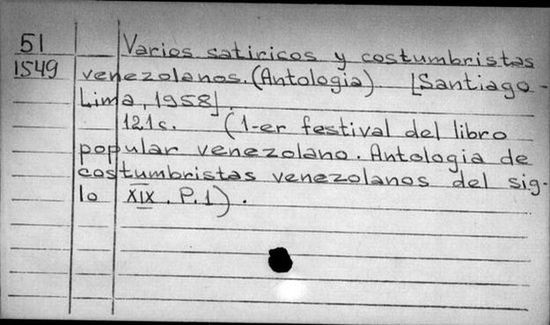 51 Varios satiricos y costumbristas
1549 venezolanos. (Antologia) [Santiago-
Lima, 1958].
121c. (1-er festival del libro
popular venezolano. Antologia de
costumbristas venezolanos del sig-
lo XIX. P.1).